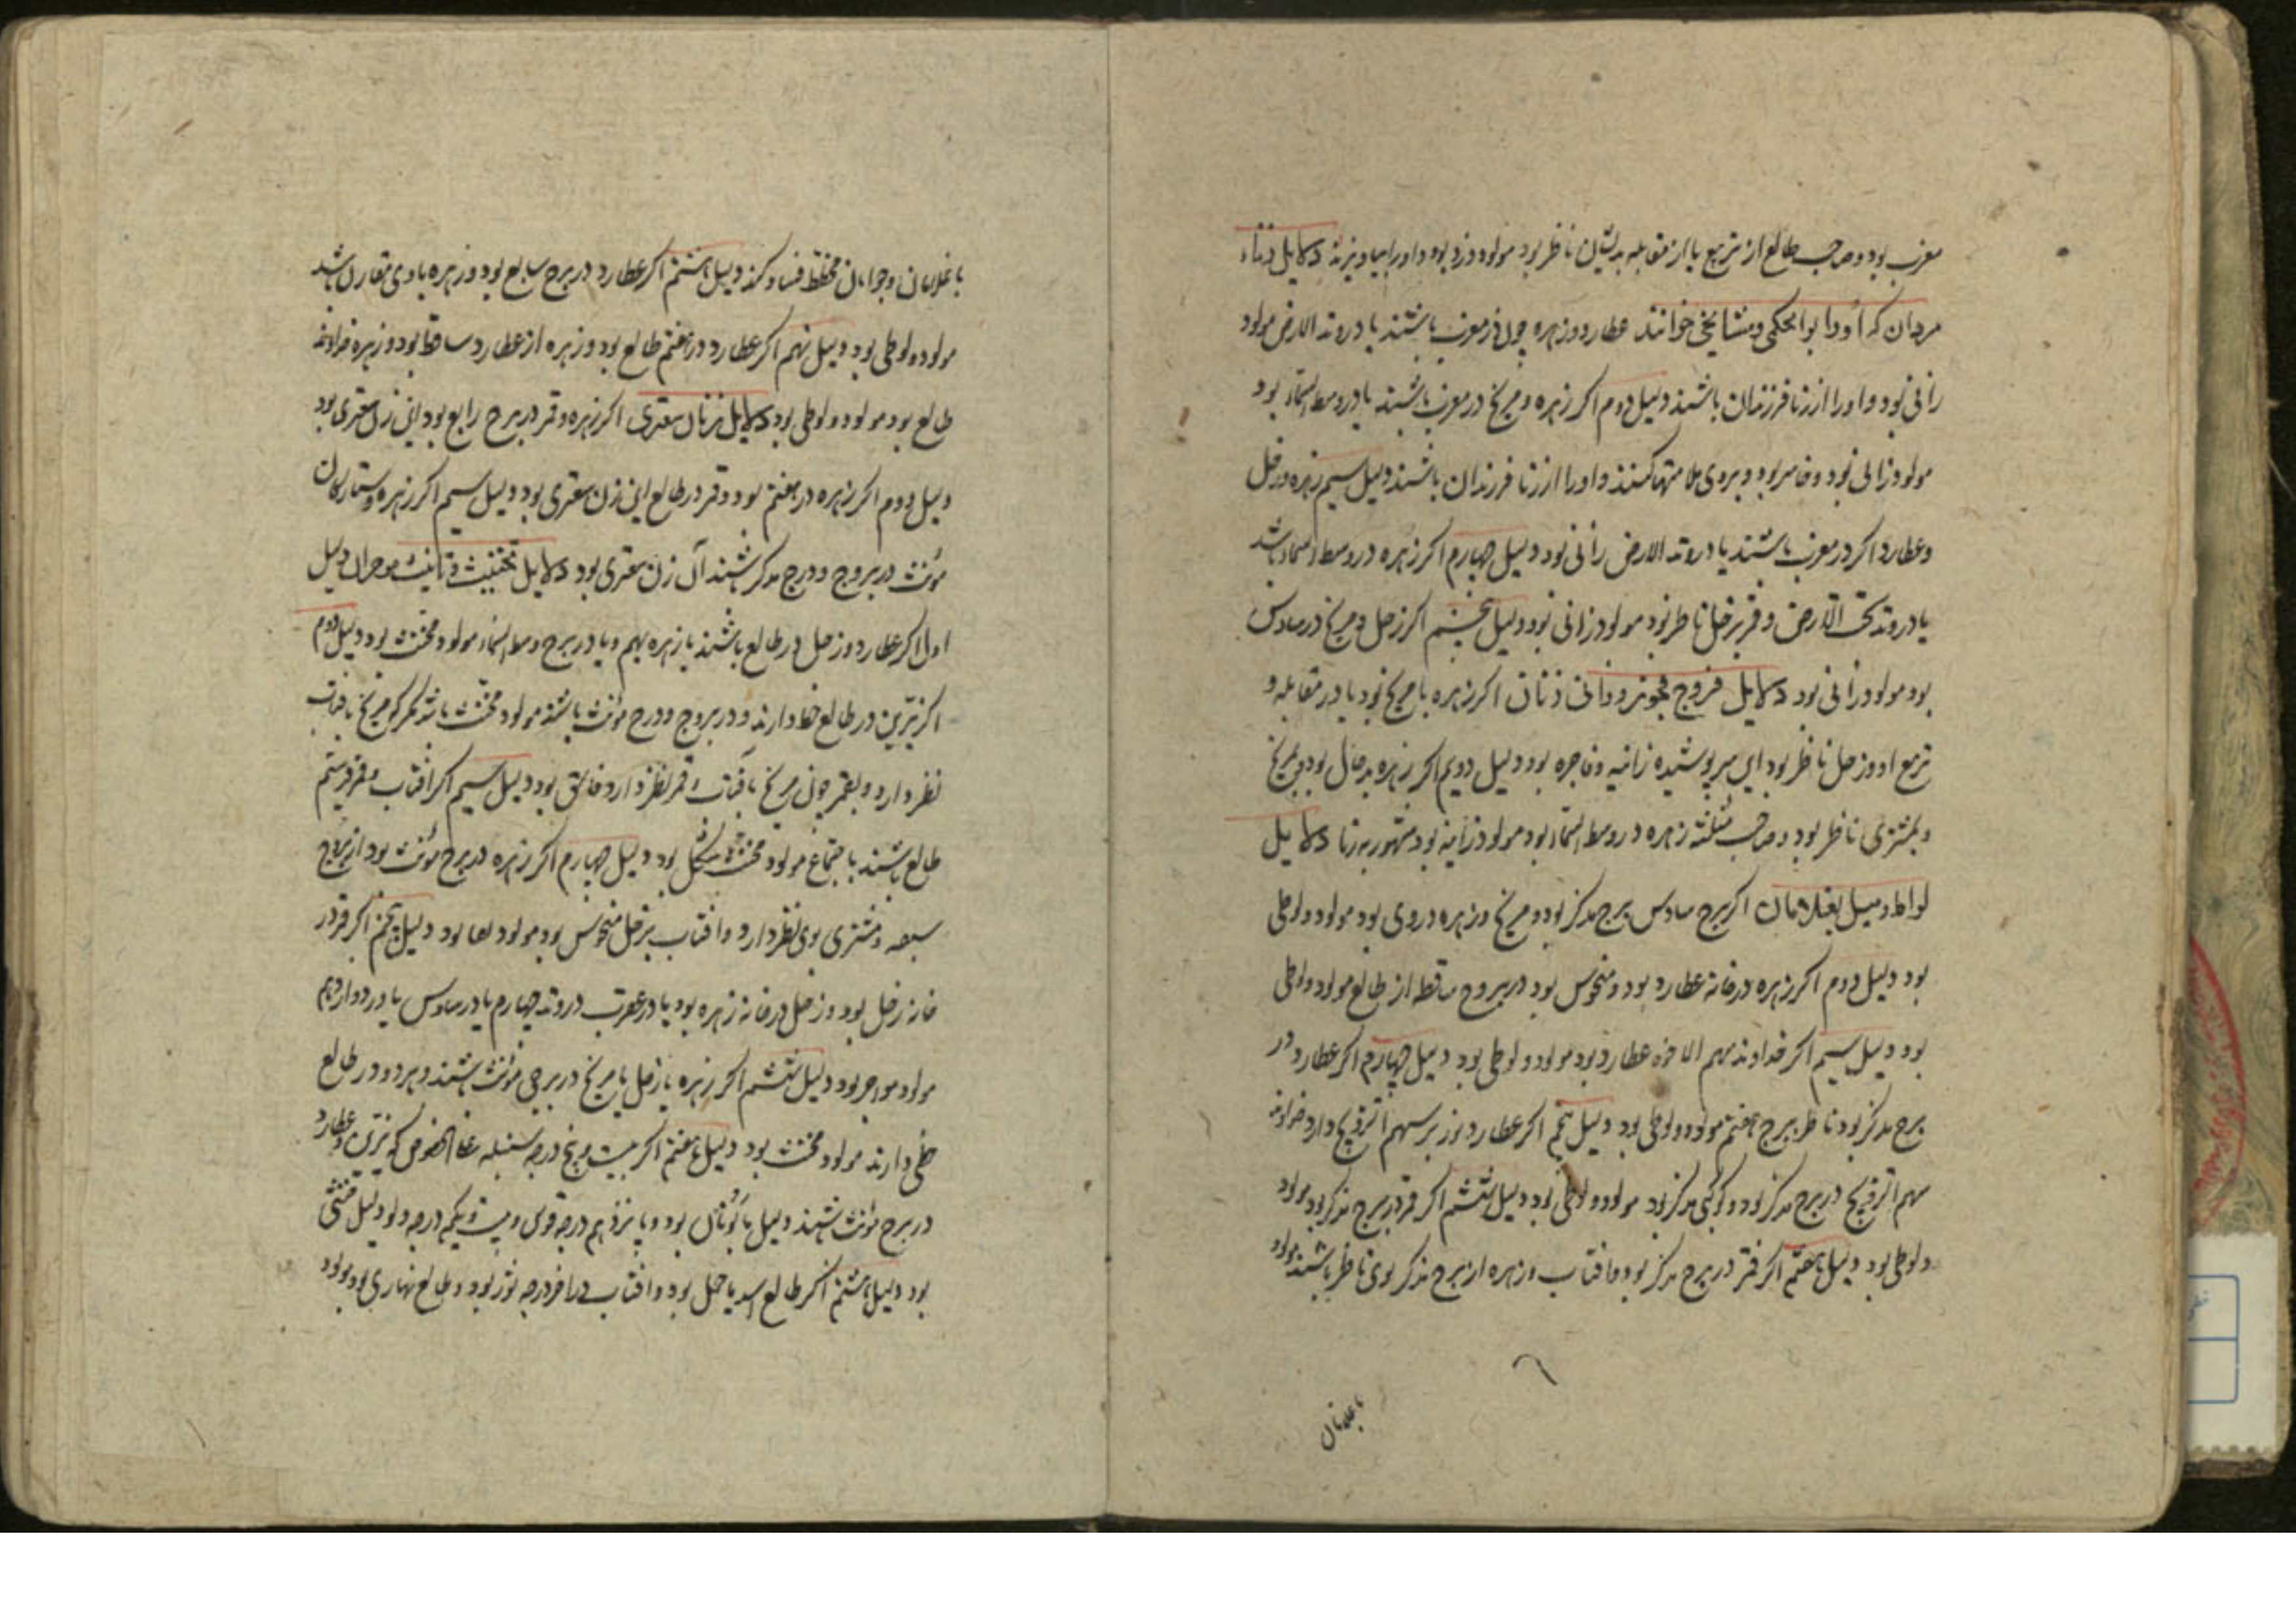 مغرب بود و صاحب طالع از تربیع یا از مقابله بدیشان ناظر بود مولود دزد بود و او را بیاویزند دلایل زناء
مردان که او را ابوالحکمی و مشایخی خوانند عطارد و زهره چون در مغرب باشند یا در وتد الارض مولود
زانی بود و او را از زنا فرزندان باشند دلیل دوم اکر زهره و مریخ در مغرب باشند یا در وسط السماء بود
مولود زانی بود و فاسر بود و بروی متهم کنند و او را از زنا فرزندان باشند دلیل سیم زهره و زحل
و عطارد اکر در مغرب باشند یا در وتد الارض زانی بود دلیل چهارم اکر زهره در وسط السماء باشد
یا در وتد تحت الارض و قمر بزحل ناظر بود مولود زانی بود دلیل پنجم اکر زحل و مریخ در سادس
بود مولود زانی بود دلایل فروج فجور و زانی زنان اکر زهره با مریخ بود یا در مقابله و
تربیع او و زحل ناظر بود این سرپوشیده زانیه و فاجره بود دلیل دویم اکر زهره بدحال بود بمریخ
و بمشتری ناظر بود و صاحب مثلثه زهره در وسط السماء بود مولود زانیه بود مشهور بزنا دلایل
لواط و میل بغلامان اکر برج سادس برج مذکر بود و مریخ و زهره در وی بود مولود لوطی
بود دلیل دوم اکر زهره در خانه عطارد بود و منحوس بود در بروج ساقطه از طالع مولود لوطی
بود دلیل سیم اکر خداوند سهم الاخوه عطارد بود مولود لوطی بود دلیل چهارم اکر عطارد در
برج مذکر بود ناظر ببرج هفتم مولود لوطی بود دلیل پنجم اکر عطارد نوز بر سهم التزویج دارد خداوند
سهم التزویج در برج مذکر بود و کوکبی مذکر بود مولود لوطی بود دلیل ششم اکر قمر در برج مذکر بود مولود
لوطی بود دلیل هفتم اکر قمر در برج مذکر بود و افتاب و زهره از برج مذکر بوی ناظر باشند مولود
باغلامان
باغلامان و جوانان مخطط فساد کند دلیل هشتم اکر عطارد در برج سابع بود و زهره با وی مقارن باشد
مولود لوطی بود دلیل نهم اکر عطارد در هفتم طالع بود و زهره از عطارد ساقط بود و زهره خداوند
طالع بود مولود لوطی بود دلایل زنان سعتری اکر زهره و قمر در برج رابع بود این زن سعتری بود
دلیل دوم اکر زهره در هفتم بود و قمر در طالع این زن سعتری بود دلیل سیم اکر زهره و ستارکان
مؤنث در بروج و درج مذکر باشند آن زن سعتری بود دلایل تخنیث و تانیث دلیل
اول اکر عطارد و زحل در طالع باشند با زهره بهم و یا در برج وسط السماء مولود مخنث بود دلیل دوم
اکر نیرین در طالع حظ دارند و در بروج و درج مؤنث باشند مولود مخنث باشد مکر که مریخ بافتاب
نظر دارد و بقمر چون مریخ بافتاب و قمر نظر دارد بود دلیل سیم اکر افتاب و قمر در ستم
طالع باشند باجتماع مولود مخنث مشکل بود دلیل چهارم اکر زهره در برج مؤنث بود از بروج
سبعه و مشتری بوی نظر دارد و افتاب بزحل منحوس بود مولود بود دلیل پنجم اکر قمر در
خانه زحل بود و زحل در خانه زهره بود یا در عقرب در وتد چهارم یا در سادس یا در دوازدهم
مولود مواجر بود دلیل ششم اکر زهره با زحل یا مریخ در برجی مؤنث باشند و هر دو در طالع
حظی دارند مولود مخنث بود دلیل هفتم اکر بیست و پنج درجه سنبله علی الخصوص که نیرین و عطارد
در برج مؤنث باشند دلیل بود و پانزدهم درجه قوس و بیست و یکم درجه دلو دلیل خنثی
بود دلیل هشتم اکر طالع اسد یا حمل بود و افتاب در آخر درجه ثور بود و طالع نهاری بود مولود